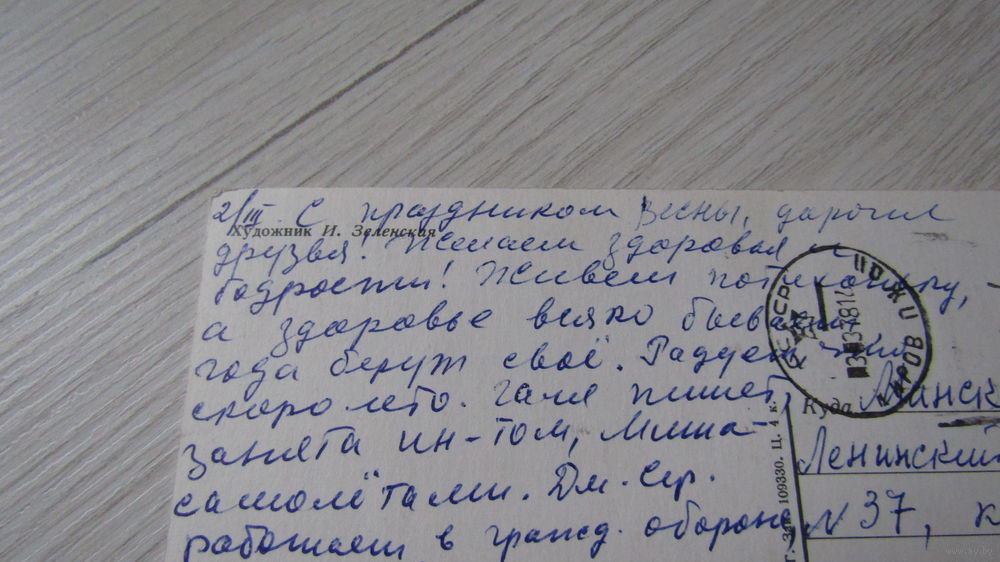 2/III С праздником весны, дорогие
Художник И. Зеленская
друзья! Желаем здоровья и
бодрости! Живем потихоньку,
а здоровье всяко бывает
года берут своё.
скоро лето. Галя пишет,
занята ин-том, Миша-
самолётами. Дм. Сер.
работает в гражд. обороне
РСФСР КИРОВ
Куда Минск
Ленинский
N 37, к
109330. Ц. 4 к.